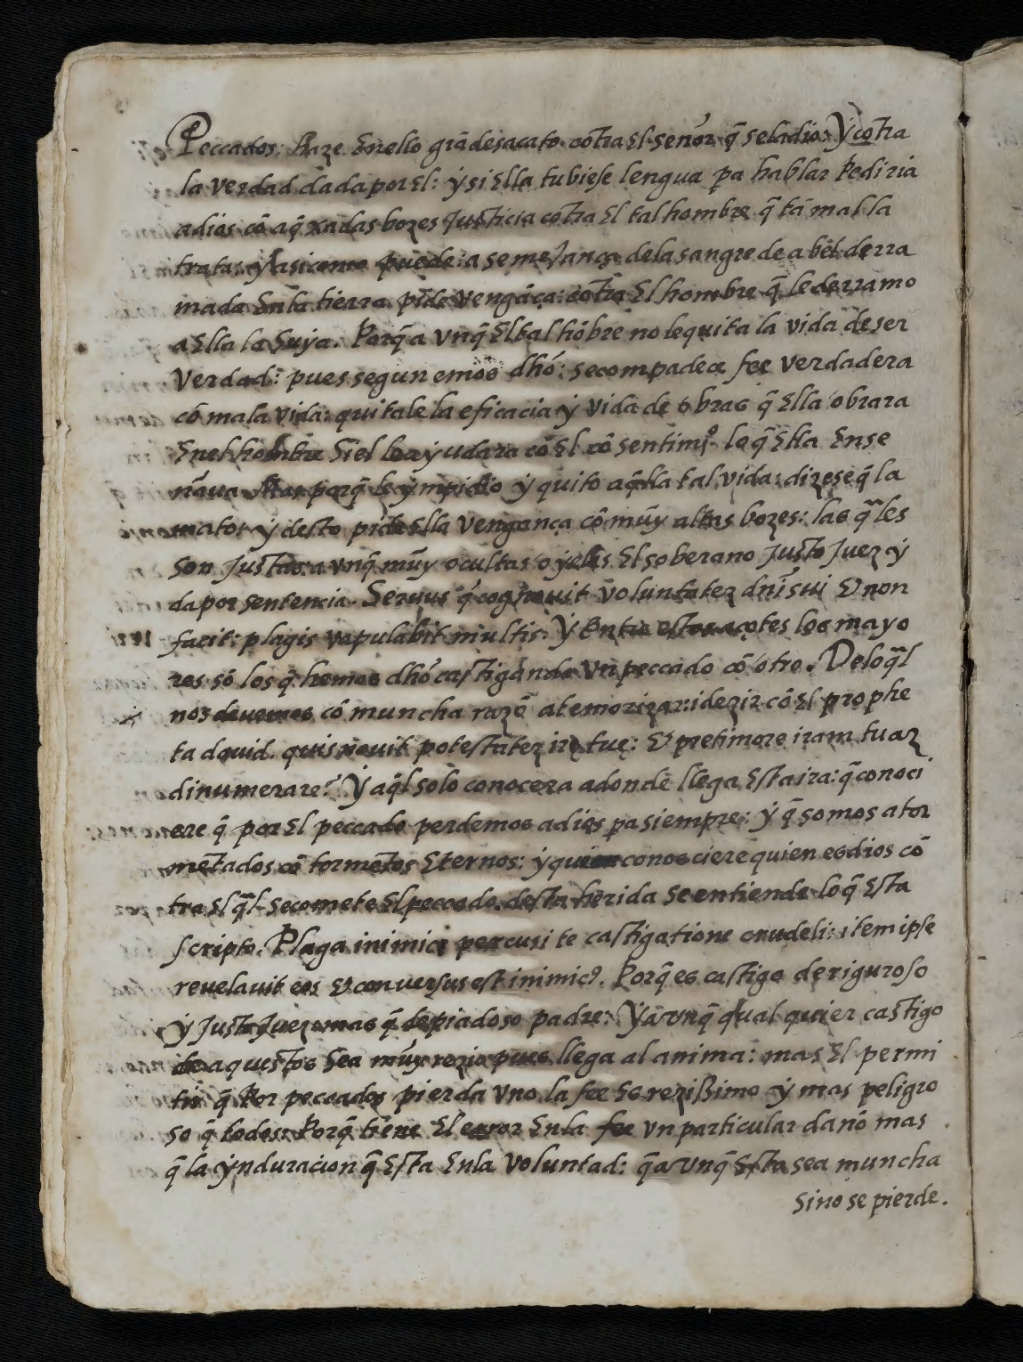 Peccados: Haze Enello grã desacato cõtra El señor q̃ sela dio: Y cõtra
la verdad dada por El: ẏ si Ella tubiese lengua pa hablar Pediria
a dios cõ aq̃xadas bozes Justicia cõtra El tal hombre q̃ tã mal la
trata: ẏ asi como puede: a semejança dela sangre de abel derra
mada Enla tierra pide vengãça: cõtra El hombre q̃ le derramo
a Ella la Suẏa. Porq̃ a vnq̃ El tal hõbre no le quita la vida de ser
Verdad: pues segun emos dhó: se compadece fee verdadera
cõ mala vida: quitale la eficacia ẏ vida de obras q̃ Ella obrara
Enel hombre Si el le aẏudara cõ El cõsentimi.º lo q̃ Ella Ense
ñaua Mas porq̃ le ẏmpidio ẏ quito aq̃lla tal vida: dizese q̃ la
mato: ẏ desto pide Ella vengança cõ mũy altas bozes: las q̃les
son Justas: a vnq̃ mũy ocultas oẏelas El soberano Justo Juez ẏ
da por sentencia. Seruus q̃ cognouit voluntatez dñi sui & non
facit: plagis vapulabit multis: Ẏ Entre estos açotes los mayo
res sõ los q̃ hemos dhó castigãndo vn peccado cõ otro. Delo q̃l
nos deuemos cõ muncha razõ atemorizar: i dezir cõ El prophe
ta dauid. quis nouit potestatez ire tue: & pre timore iram tuaz
dinumerare? Ẏ aq̃l solo conocera a donde llega Esta ira: q̃ conoci
ere q̃ por El peccado perdemos a dios pa siempre: ẏ q̃ somos ator
mẽtados cõ tormẽtos Eternos: ẏ quien conosciere quien es dios cõ
tra El q̃l se comete El peccado. desta herida se entiende lo q̃ Esta
scripto. Plaga inimici percusi te castigatione crudeli: item ipse
reuelauit eos & conuersus est inimicꝰ. Porq̃ es castigo de riguroso
ẏ Justo Juez mas q̃ de piadoso padre: Ẏ a vnq̃ qual quier castigo
de aquestos Sea mũy rezio pues llega al anima: mas El permi
tir q̃ Por peccados pierda vno la fee Es rezißimo ẏ mas peligro
so q̃ todos: Porq̃ tiene El error Enla fee vn particular daño mas
q̃ la ẏnduracion q̃ Esta Enla voluntad: q̃ a vnq̃ Esta sea muncha
Si no se pierde.